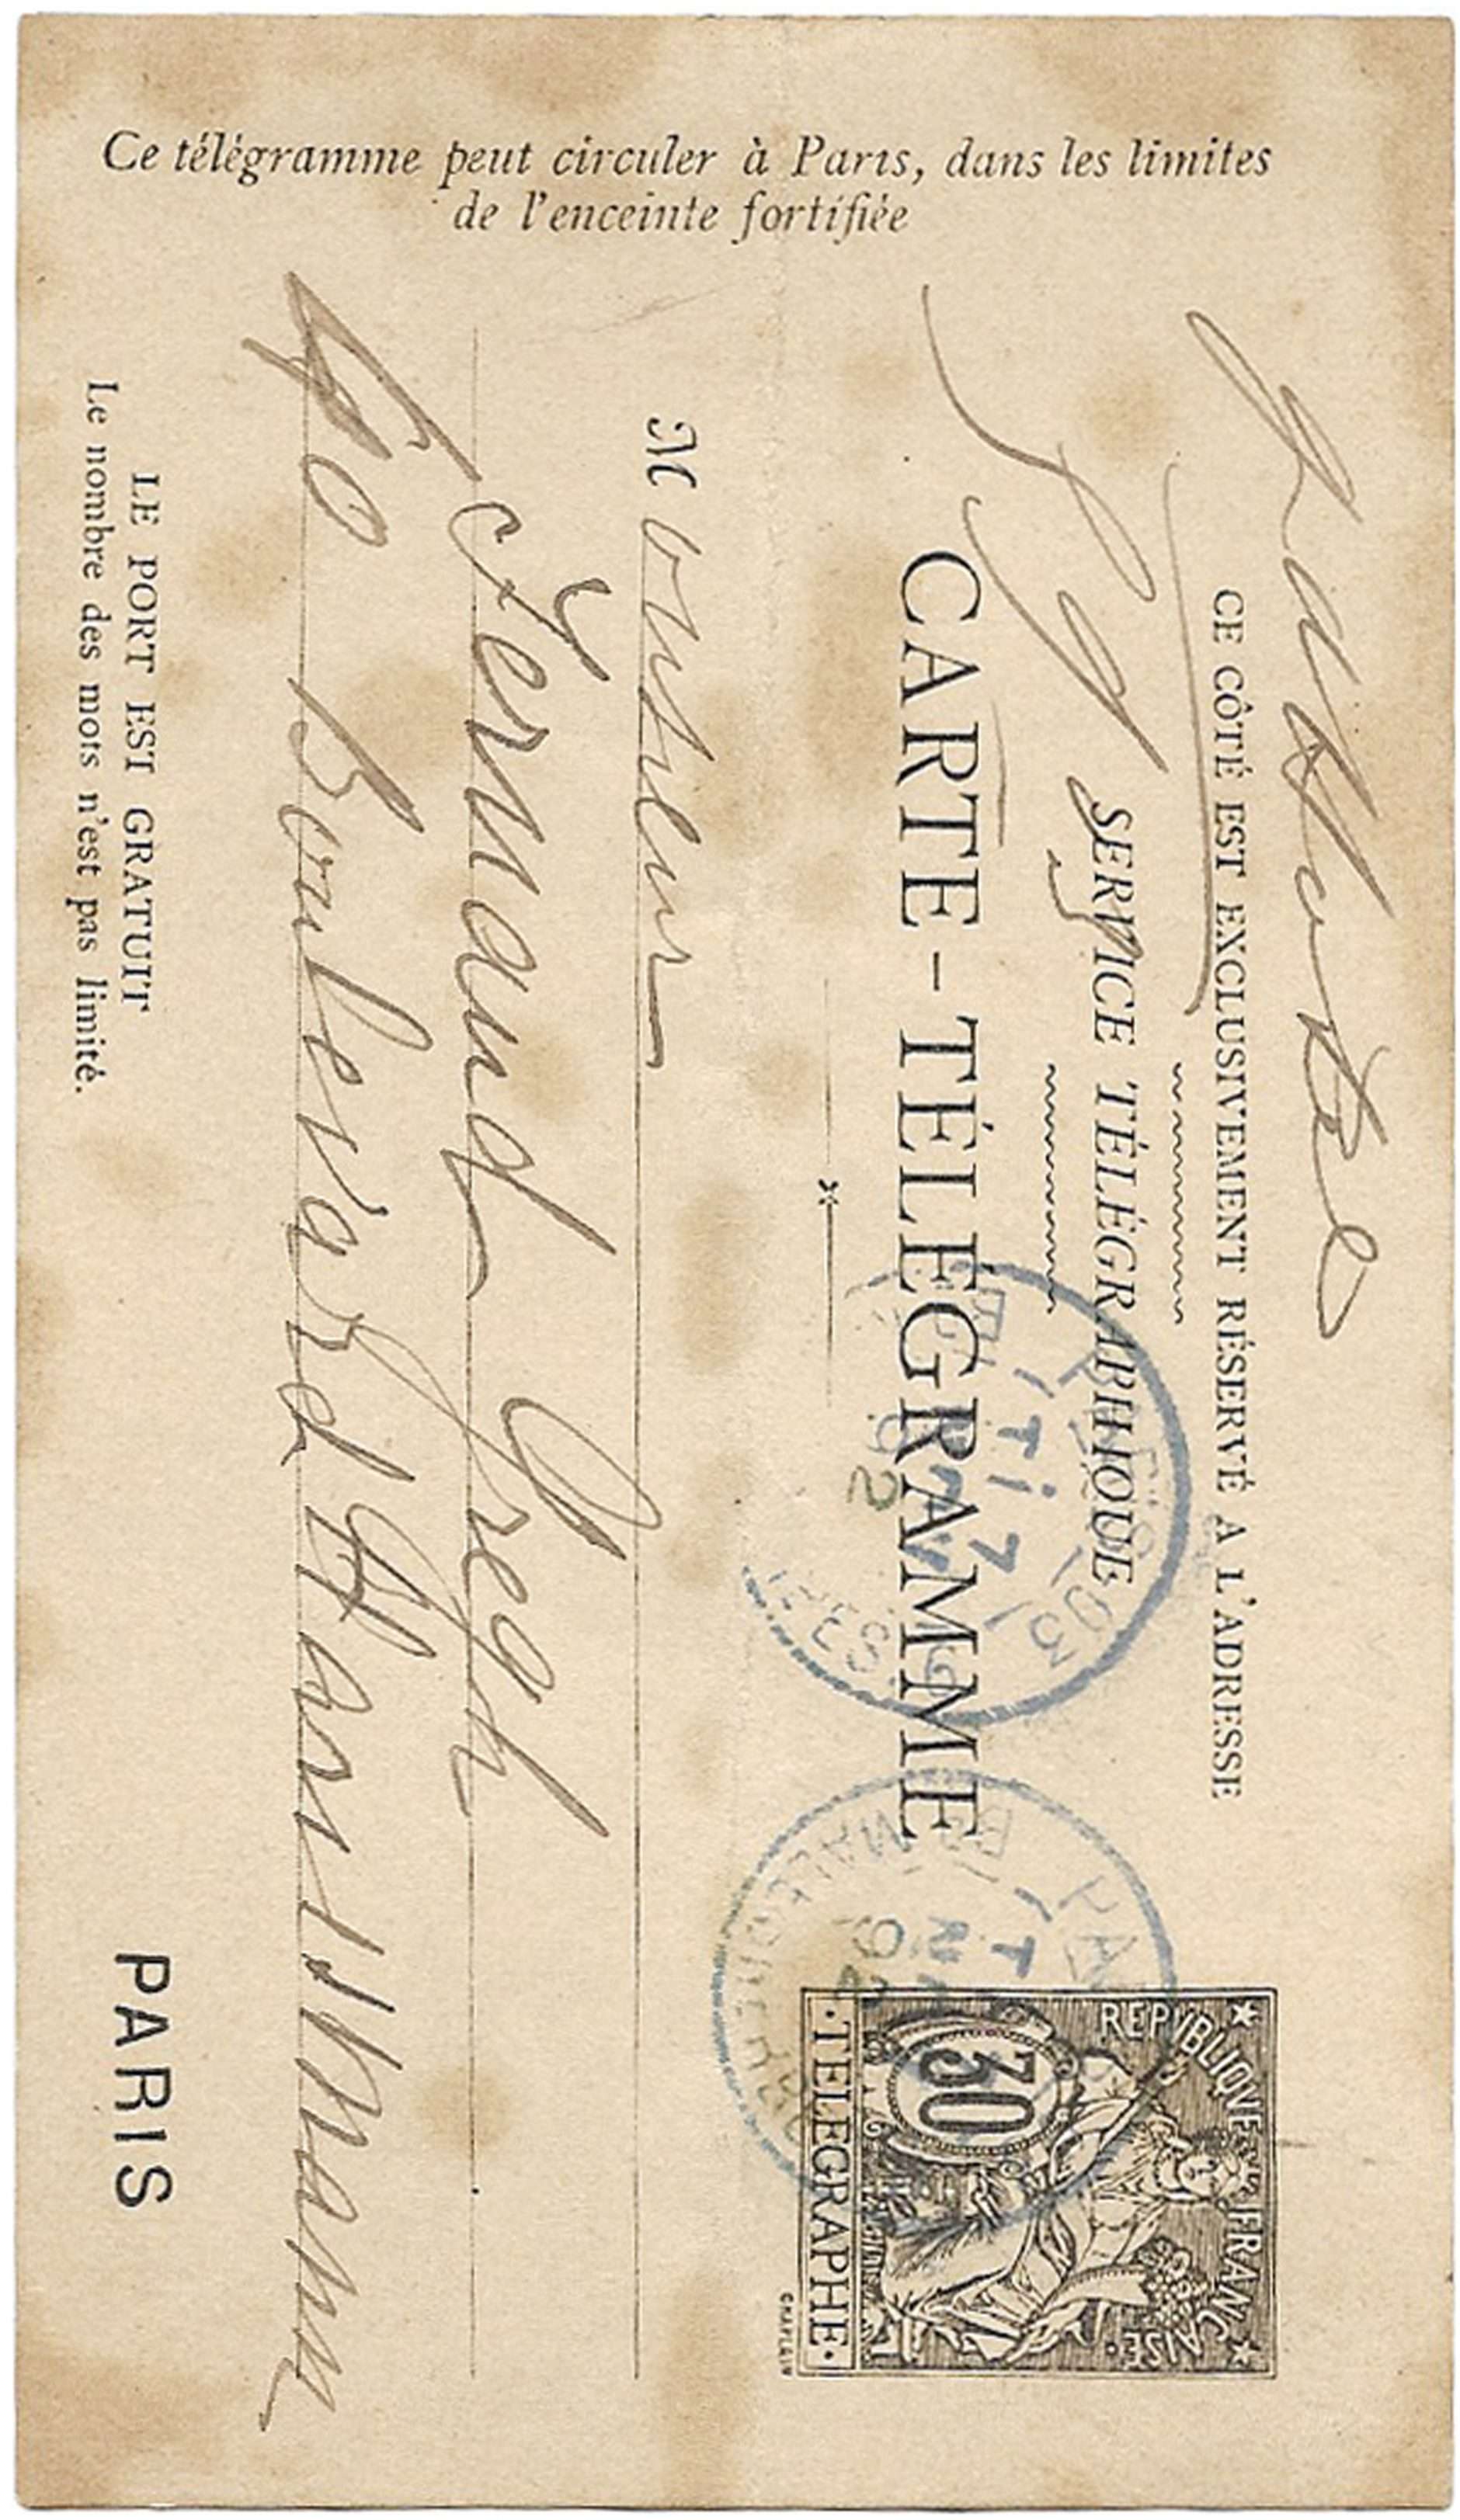 Ce télégramme peut circuler à Paris, dans les limites
de l'enceinte fortifiée
CE CÔTÉ EST EXCLUSIVEMENT RÉSERVÉ A L'ADRESSE
SERVICE TÉLÉGRAPHIQUE
CARTE-TÉLÉGRAMME
REPUBLIQUE FRANÇAISE
30
TELEGRAPHE
CHAPLAIN
Monsieur
Fernand Gregh
Boulevard Haussmann
PARIS
LE PORT EST GRATUIT
Le nombre des mots n'est pas limité.